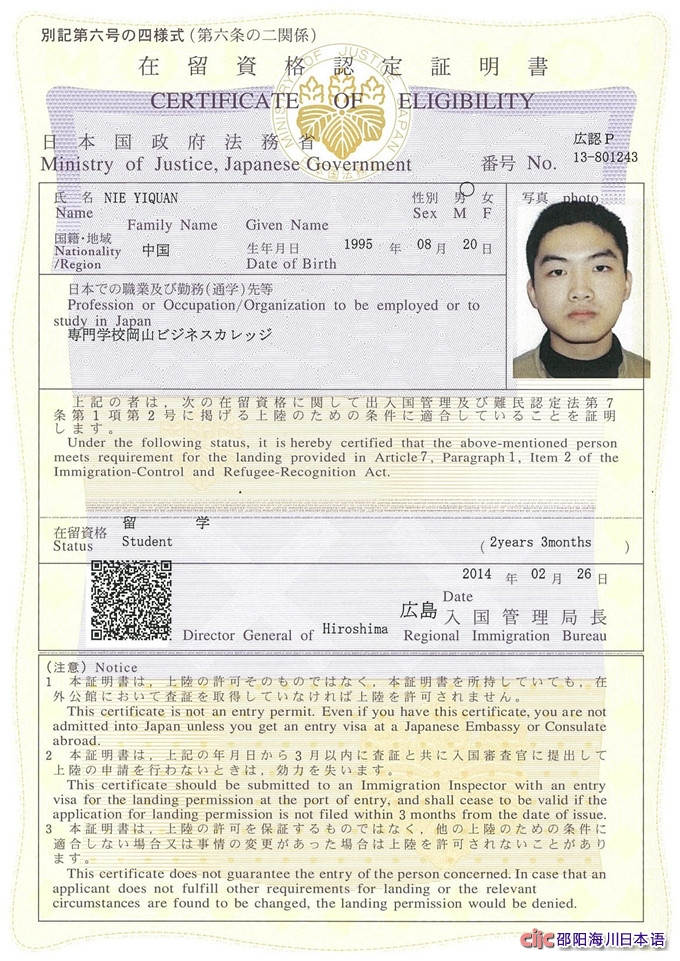 別記第六号の四様式(第六条の二関係)
在留資格認定証明書
CERTIFICATE OF ELIGIBILITY
日本国政府法務省
Ministry of Justice, Japanese Government
番号 No.
広認P
13-801243
氏名 NIE YIQUAN
Name
Family Name Given Name
性別 男 女
Sex M F
写真 photo
国籍・地域
Nationality 中国
/Region
生年月日 1995 年 08 月 20 日
Date of Birth
日本での職業及び勤務(通学)先等
Profession or Occupation/Organization to be employed or to
study in Japan
専門学校岡山ビジネスカレッジ
上記の者は,次の在留資格に関して出入国管理及び難民認定法第7
条第1項第2号に掲げる上陸のための条件に適合していることを証明
します。
Under the following status, it is hereby certified that the above-mentioned person
meets requirement for the landing provided in Article 7, Paragraph 1, Item 2 of the
Immigration-Control and Refugee-Recognition Act.
在留資格 留学
Status Student
( 2years 3months )
2014 年 02 月 26 日
Date
広島 入国管理局長
Director General of Hiroshima Regional Immigration Bureau
(注意) Notice
1 本証明書は,上陸の許可そのものではなく,本証明書を所持していても,在
外公館において査証を取得していなければ上陸を許可されません。
This certificate is not an entry permit. Even if you have this certificate, you are not
admitted into Japan unless you get an entry visa at a Japanese Embassy or Consulate
abroad.
2 本証明書は,上記の年月日から3月以内に査証と共に入国審査官に提出して
上陸の申請を行わないときは,効力を失います。
This certificate should be submitted to an Immigration Inspector with an entry
visa for the landing permission at the port of entry, and shall cease to be valid if the
application for landing permission is not filed within 3 months from the date of issue.
3 本証明書は,上陸の許可を保証するものではなく,他の上陸のための条件に
適合しない場合又は事情の変更があった場合は上陸を許可されないことがあり
ます。
This certificate does not guarantee the entry of the person concerned. In case that an
applicant does not fulfill other requirements for landing or the relevant
circumstances are found to be changed, the landing permission would be denied.
cljc邵阳海川日本语